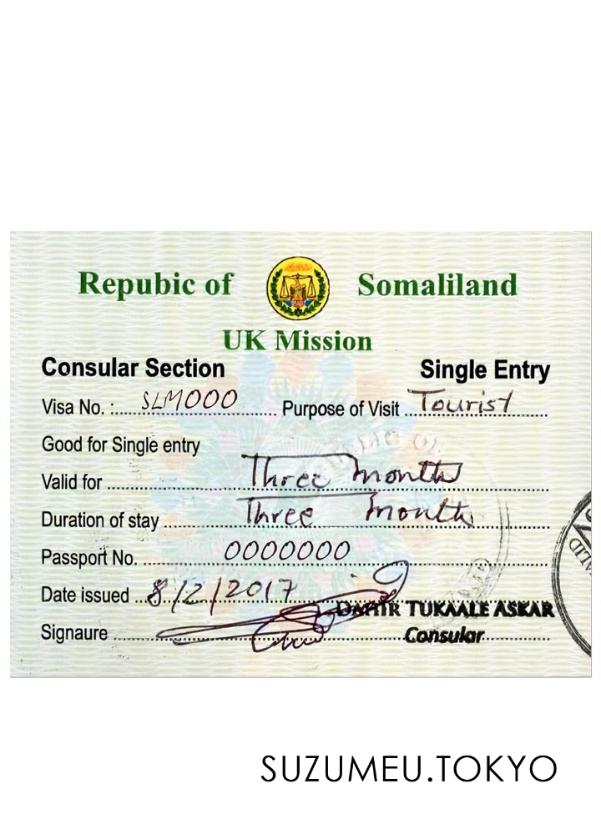 Repubic of Somaliland
UK Mission
Consular Section Single Entry
Visa No. :..... SLM000 ..... Purpose of Visit ... Tourist .....
Good for Single entry
Valid for ..... Three month .....
Duration of stay ..... Three month .....
Passport No. ..... 0000000 .....
Date issued ... 8/2/2017 .....
DAHIR TUKAALE ASKAR
Signaure ..... Consular .....
SUZUMEU.TOKYO